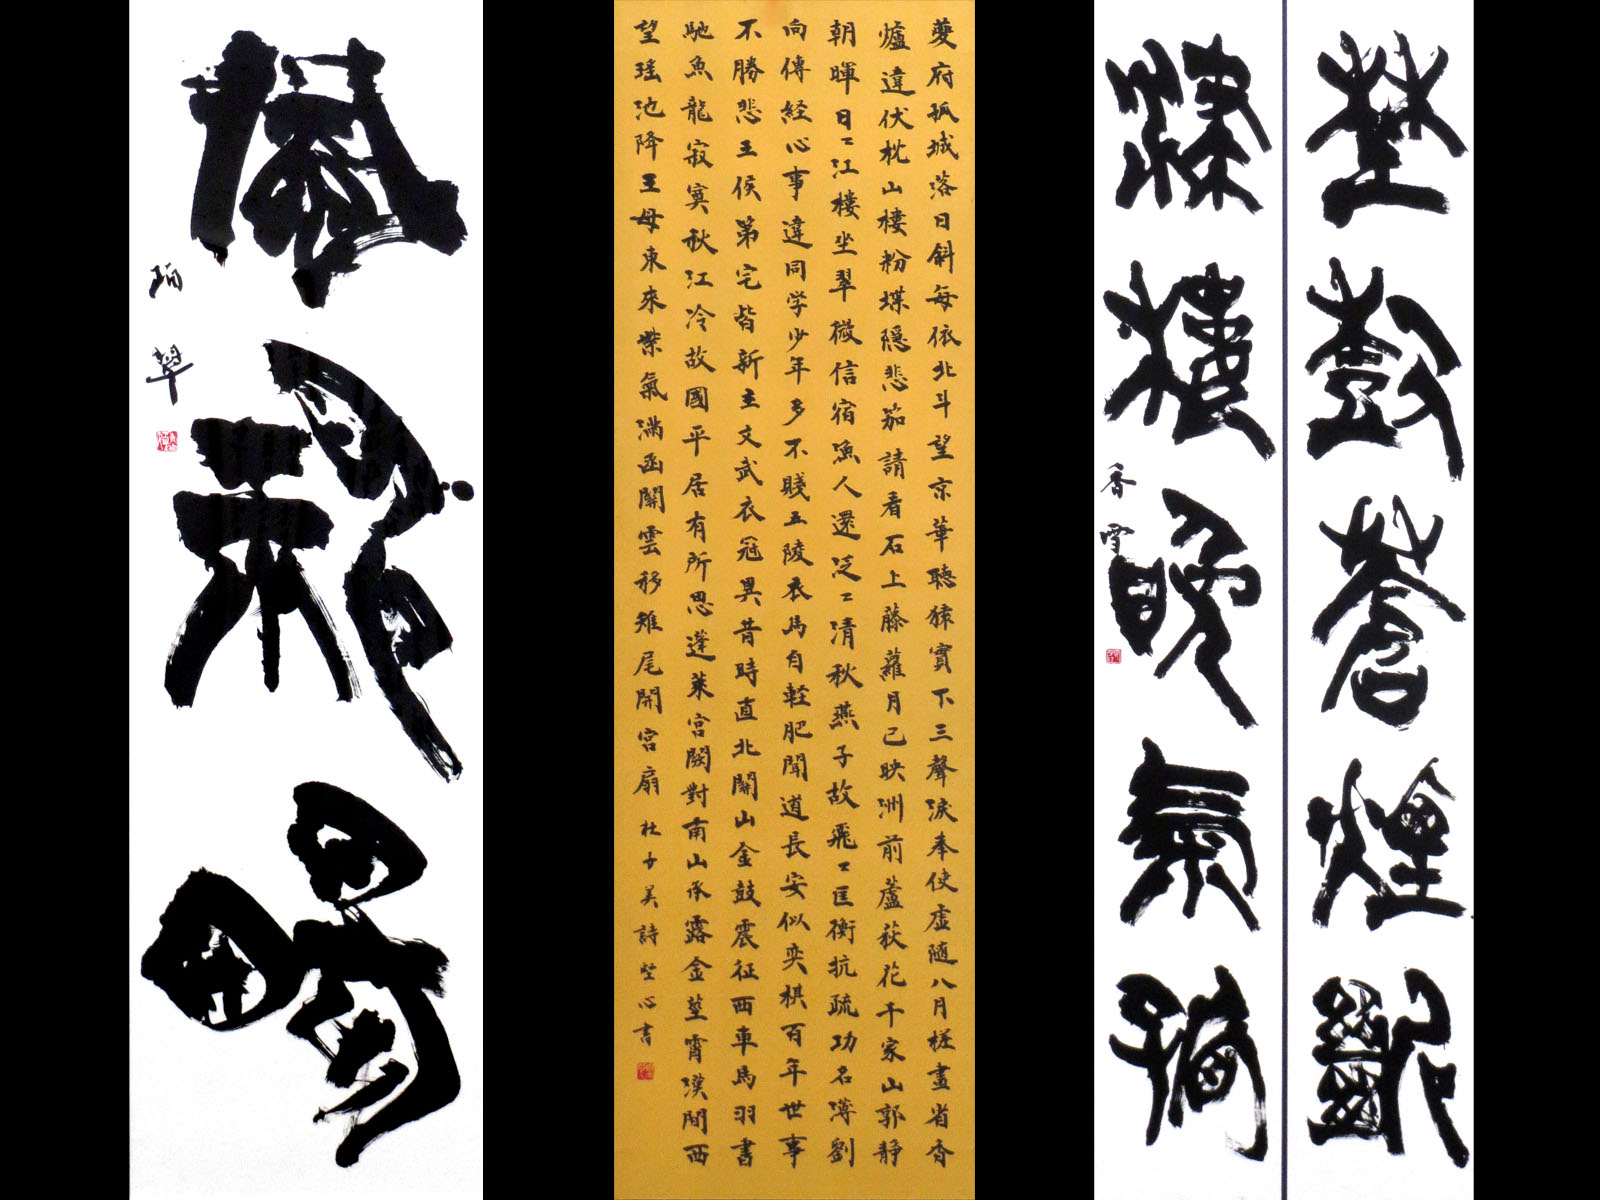 埜鼓蒼煙斷
樓晚氣
香雪
夔府孤城落日斜每依北斗望京華聴猿實下三聲涙奉使虚随八月槎畫省香
爐違伏枕山樓粉堞隠悲笳請看石上藤蘿月已映洲前蘆荻花千家山郭静
朝暉日〻江樓坐翠微信宿漁人還泛〻清秋燕子故飛〻匡衡抗疏功名薄劉
向傳経心事違同学少年多不賤五陵衣馬自軽肥聞道長安似奕棋百年世事
不勝悲王侯第宅皆新主文武衣冠異昔時直北關山金鼓震征西車馬羽書
馳魚龍寂寞秋江冷故國平居有所思蓬莱宮闕對南山承露金莖霄漢間西
望瑶池降王母東來紫氣満函關雲移雉尾開宮扇 杜子美詩 堅心書
暢
翠